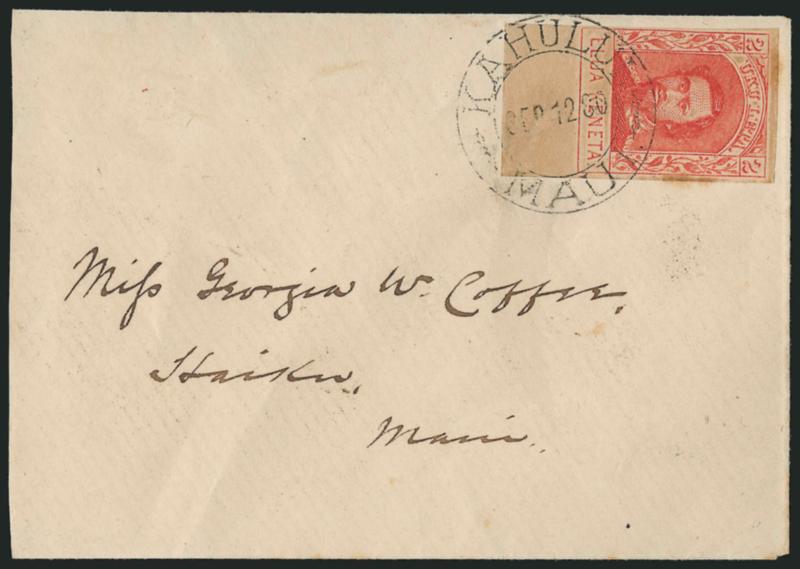 KAHULUI
SEP 12 80
MAUI
ELUA KENETA
2
UKU LETA
2
Miss Georgia W. Coffee,
Haiku,
Maui.